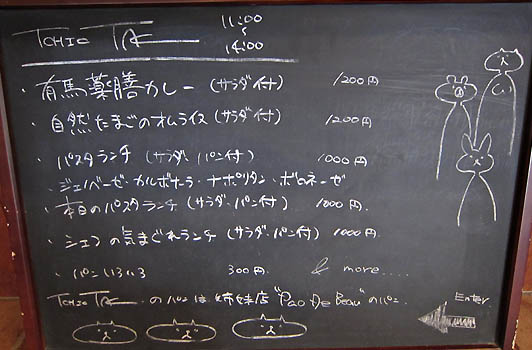 TCHIC TAC 11:00 ~ 14:00
・有馬薬膳カレー (サラダ付) 1200円
・自然たまごのオムライス (サラダ付) 1200円
・パスタランチ (サラダ・パン付) 1000円
・ジェノベーゼ・カルボナーラ・ナポリタン・ボロネーゼ
・本日のパスタランチ (サラダ・パン付) 1000円.
・シェフの気まぐれランチ (サラダ・パン付) 1000円.
・パンいろいろ 300円. & more....
TCHIC TAC のパンは姉妹店 "Pao De Beau" のパン.
Enter